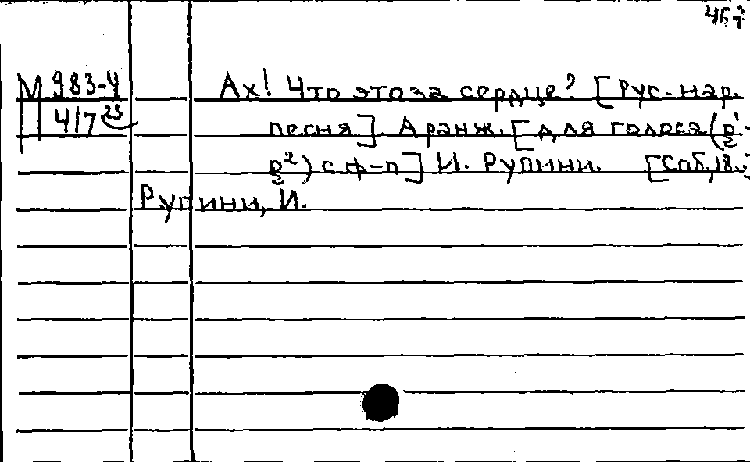 М 983-4 Ах! Что это за сердце? [Рус. нар.
4/7 песня]. Аранж. [для голоса (
) с ф-п] И. Рупини. [Спб, 18
Рупини, И.